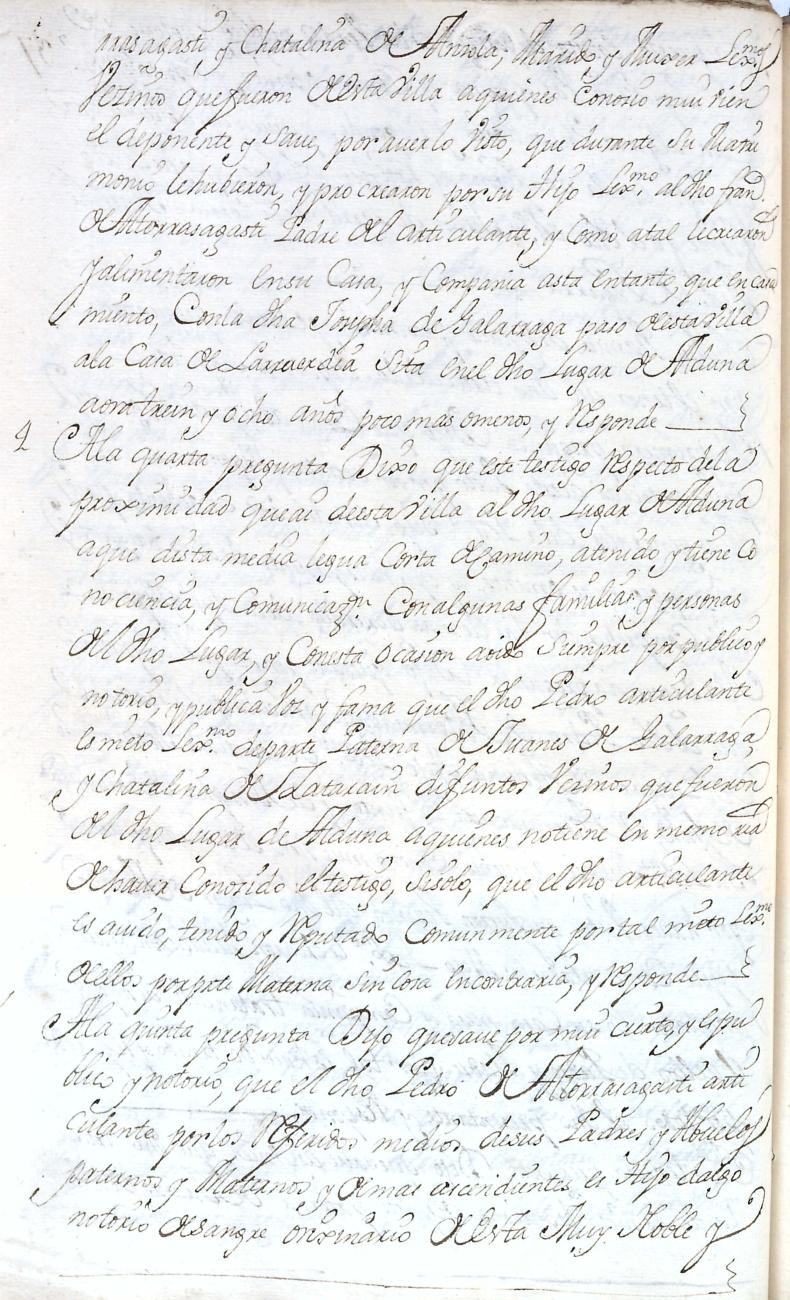 rrasagasti, y Chatalina de Arriola, Marido y Muxer Lexmos
Vezinos que fueron de esta Villa a quienes Conosio mui vien
el deponente y save, por averlo visto, que durante su Matri
monio le hubieron, y procrearon por su Hijo Lexmo al dho fran.
de Atorrasagasti Padre del articulante, y Como atal lecriaron
y alimentaron en su Casa, y Compania asta entanto, que en casa
miento, Conla dha Josepha de Galarraga paso de esta Villa
ala Casa de Larruerdia sita en el dho Lugar de Alduna
aora trein y ocho años poco mas omenos, y Responde
4 Ala quarta pregunta Dixo que este testigo Respecto dela
proximidad que ai de esta Villa al dho Lugar de Alduna
a que dista media legua Corta de Camino, atenido, y tiene Co
nociencia, y Comunicazn Con algunas familias, y personas
del dho Lugar, y Conesta ocasion aoido siempre por publico y
notorio, y publica Voz y fama que el dho Pedro articulante
es nieto Lexmo departe Paterna de Juanes de Galarraga
y Chatalina de Zatarain difuntos Vezinos que fueron
del dho Lugar de Alduna aquienes notiene en memoria
de haver Conozido el testigo, sisolo, que el dho articulante
es avido, tenido y Reputado Comunmente portal nieto Lexmo
de ellos por pte Materna sin cosa en contrario, y Responde
Ala quinta pregunta Dijo quesave por mui cierto, y es pu
blico y notorio, que el dho Pedro de Atorrasagasti arti
culante por los Referidos medios desus Padres y Abuelos
paternos y Maternos y demas ascendientes es Hijo dalgo
notorio de sangre orixinario de esta Muy Noble y